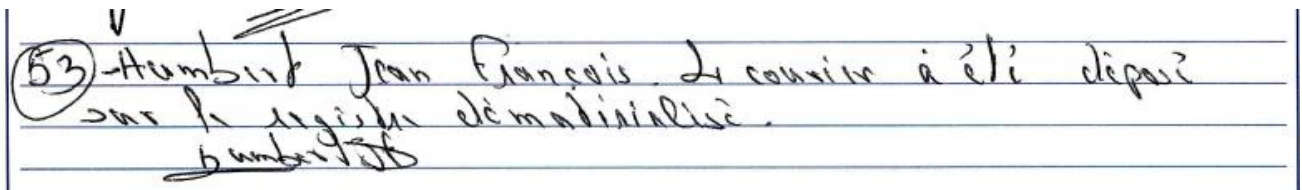 53 - Humbert Jean François. Le courrier à été déposé
sur le registre dématérialisé.
Humbert JF